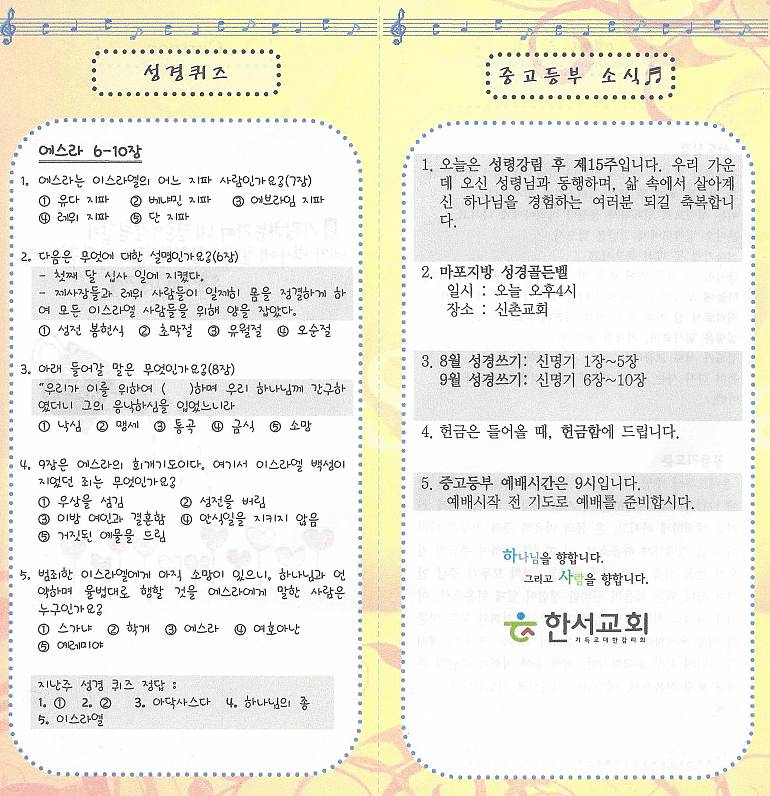 성경퀴즈
에스라 6-10장
1. 에스라는 이스라엘의 어느 지파 사람인가요?(7장)
① 유다 지파 ② 베냐민 지파 ③ 에브라임 지파
④ 레위 지파 ⑤ 단 지파
2. 다음은 무엇에 대한 설명인가요?(6장)
- 첫째 달 십사 일에 지켰다.
- 제사장들과 레위 사람들이 일제히 몸을 정결하게 하
여 모든 이스라엘 사람들을 위해 양을 잡았다.
① 성전 봉헌식 ② 초막절 ③ 유월절 ④ 오순절
3. 아래 들어갈 말은 무엇인가요?(8장)
“우리가 이를 위하여 ( )하며 우리 하나님께 간구하
였더니 그의 응낙하심을 입었느니라
① 낙심 ② 맹세 ③ 통곡 ④ 금식 ⑤ 소망
4. 9장은 에스라의 회개기도이다. 여기서 이스라엘 백성이
지었던 죄는 무엇인가요?
① 우상을 섬김 ② 성전을 버림
③ 이방 여인과 결혼함 ④ 안식일을 지키지 않음
⑤ 거짓된 예물을 드림
5. 범죄한 이스라엘에게 아직 소망이 있으니, 하나님과 언
약하며 율법대로 행할 것을 에스라에게 말한 사람은
누구인가요?
① 스가냐 ② 학개 ③ 에스라 ④ 여호아난
⑤ 예레미야
지난주 성경 퀴즈 정답 :
1. ① 2. ② 3. 아닥사스다 4. 하나님의 종
5. 이스라엘
중고등부 소식♬
1. 오늘은 성령강림 후 제15주입니다. 우리 가운
데 오신 성령님과 동행하며, 삶 속에서 살아계
신 하나님을 경험하는 여러분 되길 축복합니
다.
2. 마포지방 성경골든벨
일시 : 오늘 오후4시
장소 : 신촌교회
3. 8월 성경쓰기: 신명기 1장~5장
9월 성경쓰기: 신명기 6장~10장
4. 헌금은 들어올 때, 헌금함에 드립니다.
5. 중고등부 예배시간은 9시입니다.
예배시작 전 기도로 예배를 준비합시다.
하나님을 향합니다.
그리고 사람을 향합니다.
한서교회
기독교대한감리회